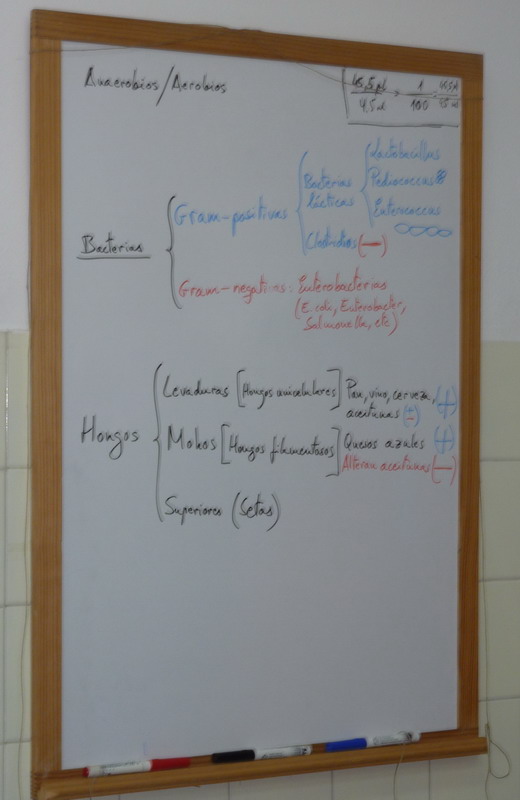 Anaerobios/Aerobios
45,5 µl / 4,5 ml = 1 / 100 =
Lactobacillus
Pediococcus
Enterococcus
Bacterias lácticas
Clostridios (—)
Gram-positivas
Bacterias
Gram-negativas: Enterobacterias
(E. coli, Enterobacter,
Salmonella, etc)
Hongos
Levaduras [Hongos unicelulares] Pan, vino, cerveza, (+)
aceitunas (±)
Mohos [Hongos filamentosos] Quesos azules (+)
Alteran aceitunas (—)
Superiores (Setas)